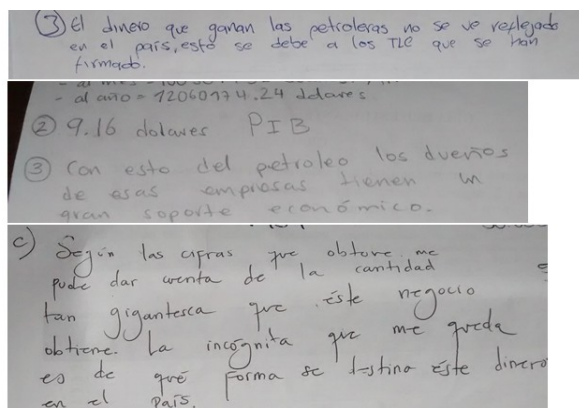 ③ El dinero que ganan las petroleras no se ve reflejado
en el país, esto se debe a los TLC que se han
firmado.
- al año = 12060174.24 dolares
② 9.16 dolares PIB
③ Con esto del petroleo los dueños
de esas empresas tienen un
gran soporte económico.
c) Según las cifras que obtuve me
pude dar cuenta de la cantidad
tan gigantesca que éste negocio
obtiene. La incógnita que me queda
es de qué forma se destina éste dinero
en el País.